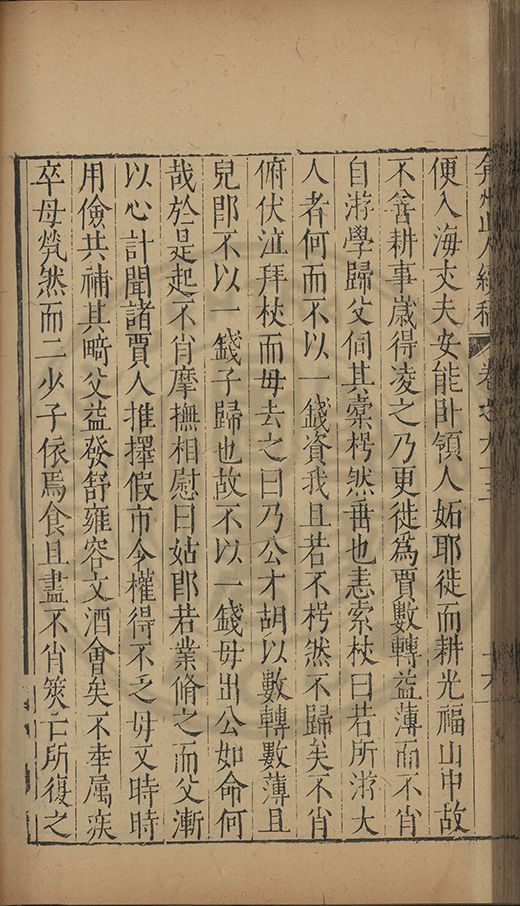 弇州山人續稿 卷之九十三 十六
便入海丈夫安能卧領人妬耶徙而耕光福山中故
不善耕事嵗得凌之乃更徙為賈數轉益薄而不肖
自游學歸父伺其橐枵然番也恚索杖曰若所游大
人者何而不以一錢資我且若不枵然不歸矣不肖
俯伏泣拜杖而毋去之曰乃公才胡以數轉數薄且
兒即不以一錢子歸也故不以一錢毋出公如命何
哉於是起不肖摩撫相慰曰姑即若業脩之而父漸
以心計聞諸賈人推擇假市令權得不乏毋又時時
用儉共補其畸父益發舒雍容文酒會矣不幸属疾
卒母煢然而二少子依焉食且盡不肖筴亡所復之